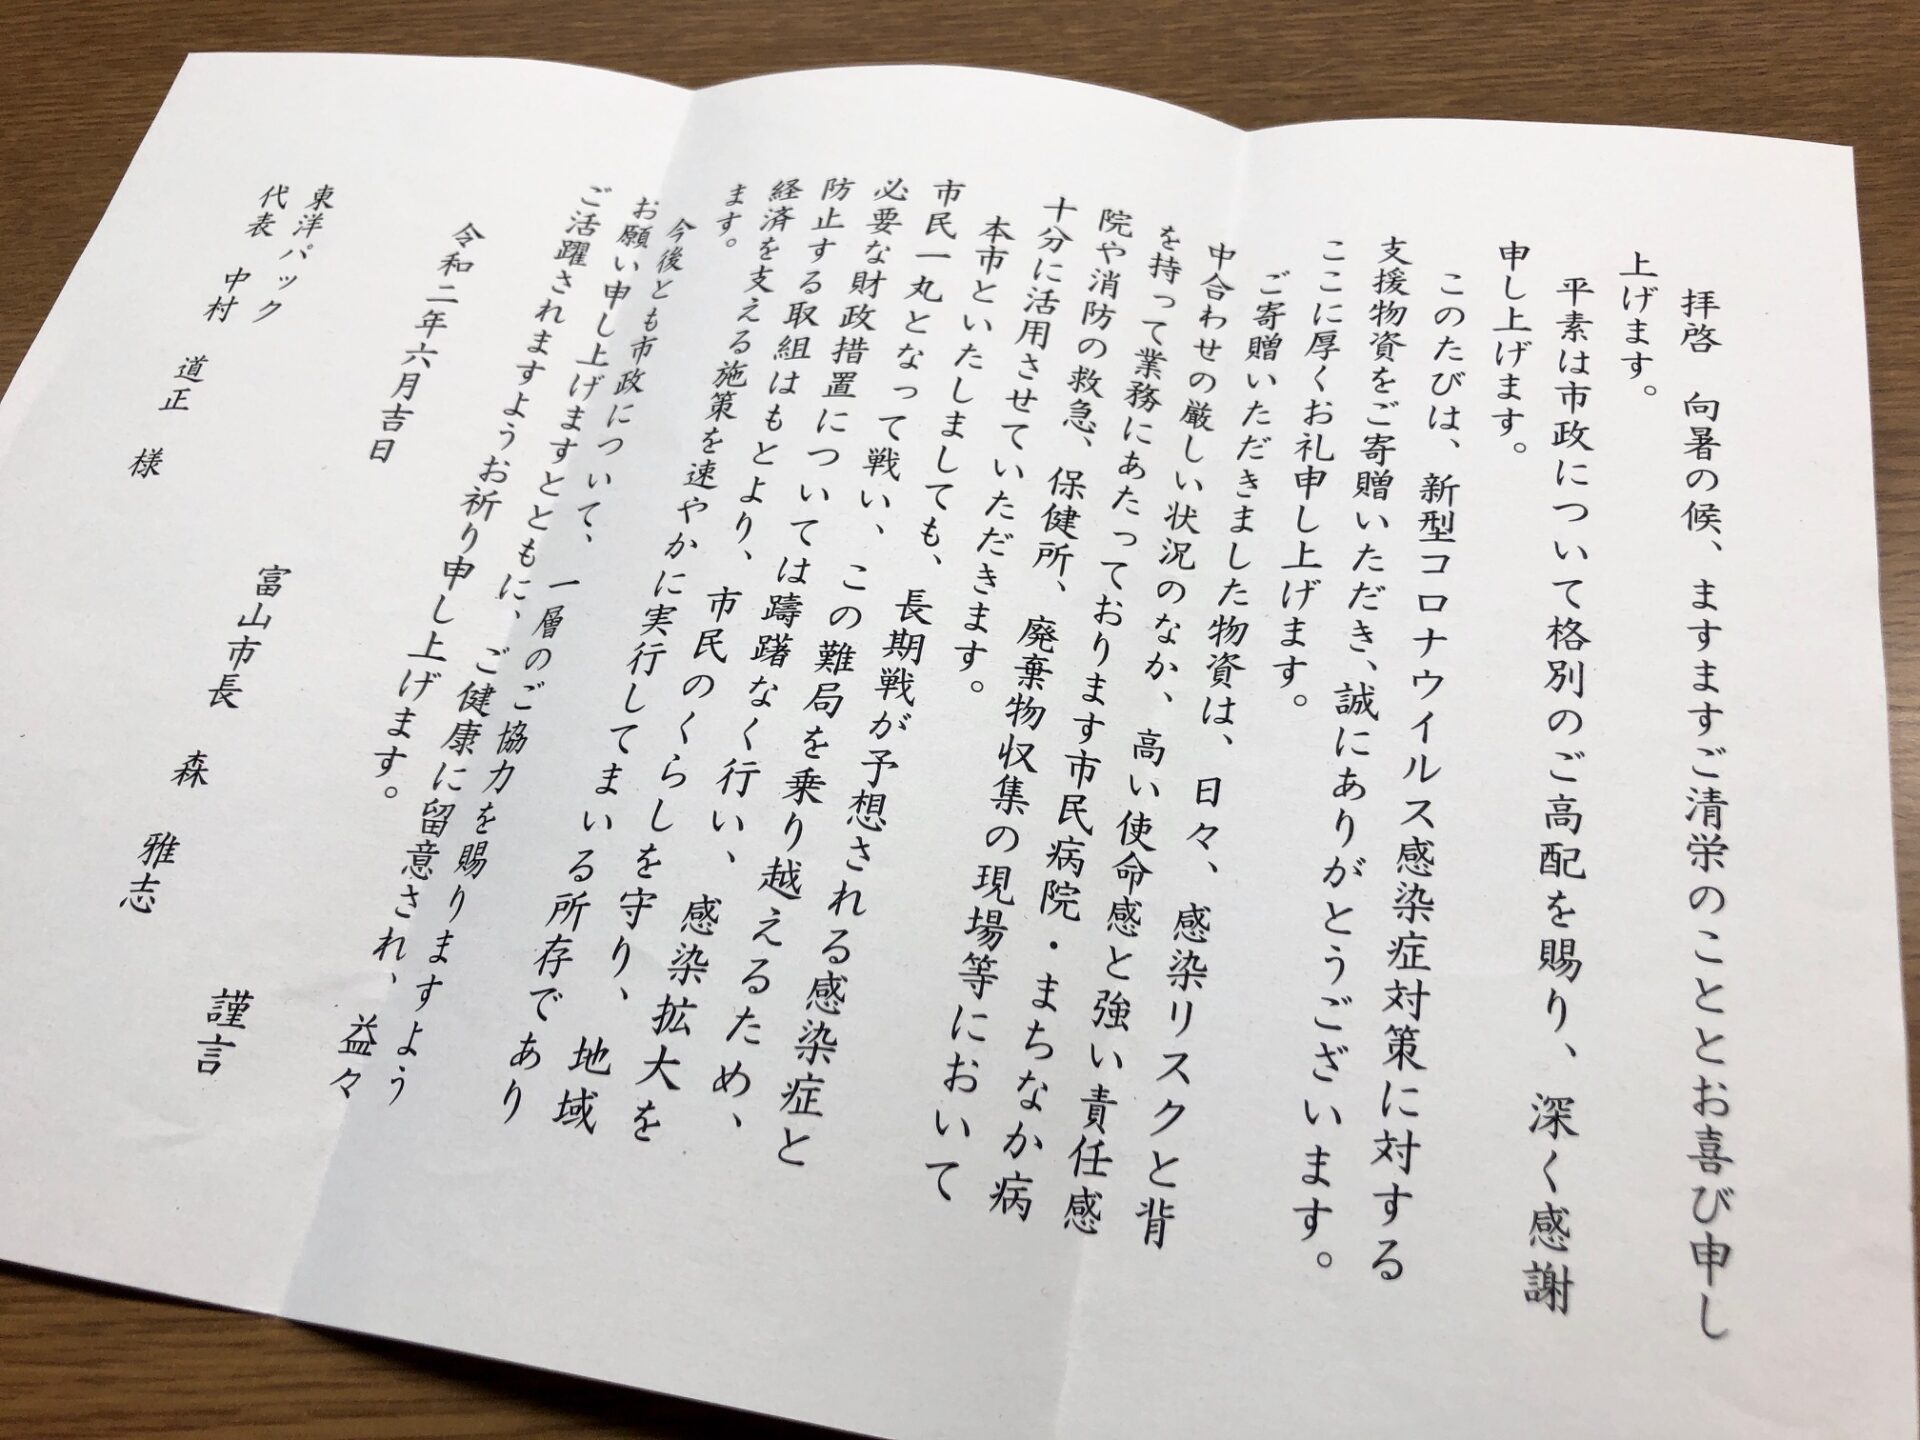 拝啓　向暑の候、ますますご清栄のこととお喜び申し
上げます。
平素は市政について格別のご高配を賜り、深く感謝
申し上げます。
このたびは、新型コロナウイルス感染症対策に対する
支援物資をご寄贈いただき、誠にありがとうございます。
ここに厚くお礼申し上げます。
ご寄贈いただきました物資は、日々、感染リスクと背
中合わせの厳しい状況のなか、高い使命感と強い責任感
を持って業務にあたっております市民病院・まちなか病
院や消防の救急、保健所、廃棄物収集の現場等において
十分に活用させていただきます。
本市といたしましても、長期戦が予想される感染症と
市民一丸となって戦い、この難局を乗り越えるため、
必要な財政措置については躊躇なく行い、感染拡大を
防止する取組はもとより、市民のくらしを守り、地域
経済を支える施策を速やかに実行してまいる所存であり
ます。
今後とも市政について、一層のご協力を賜りますよう
お願い申し上げますとともに、ご健康に留意され、益々
ご活躍されますようお祈り申し上げます。
謹言
令和二年六月吉日
富山市長　森　雅志
東洋パック
代表　中村　道正　様